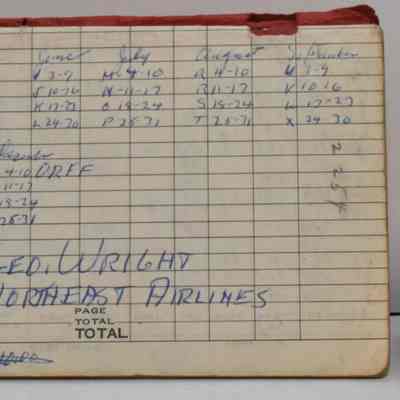 June July August September
3-9 M-4-10 R 4-10
J 10-16 N-11-17 R 11-17 V 10-16
K 17-23 O 18-24 S 18-24 W 17-23
L 24-30 P 25-31 T 25-31 X 24-30
4-10 DRFF
11-17
18-24
25-31
ED. WRIGHT
NORTHEAST AIRLINES
PAGE
TOTAL
TOTAL